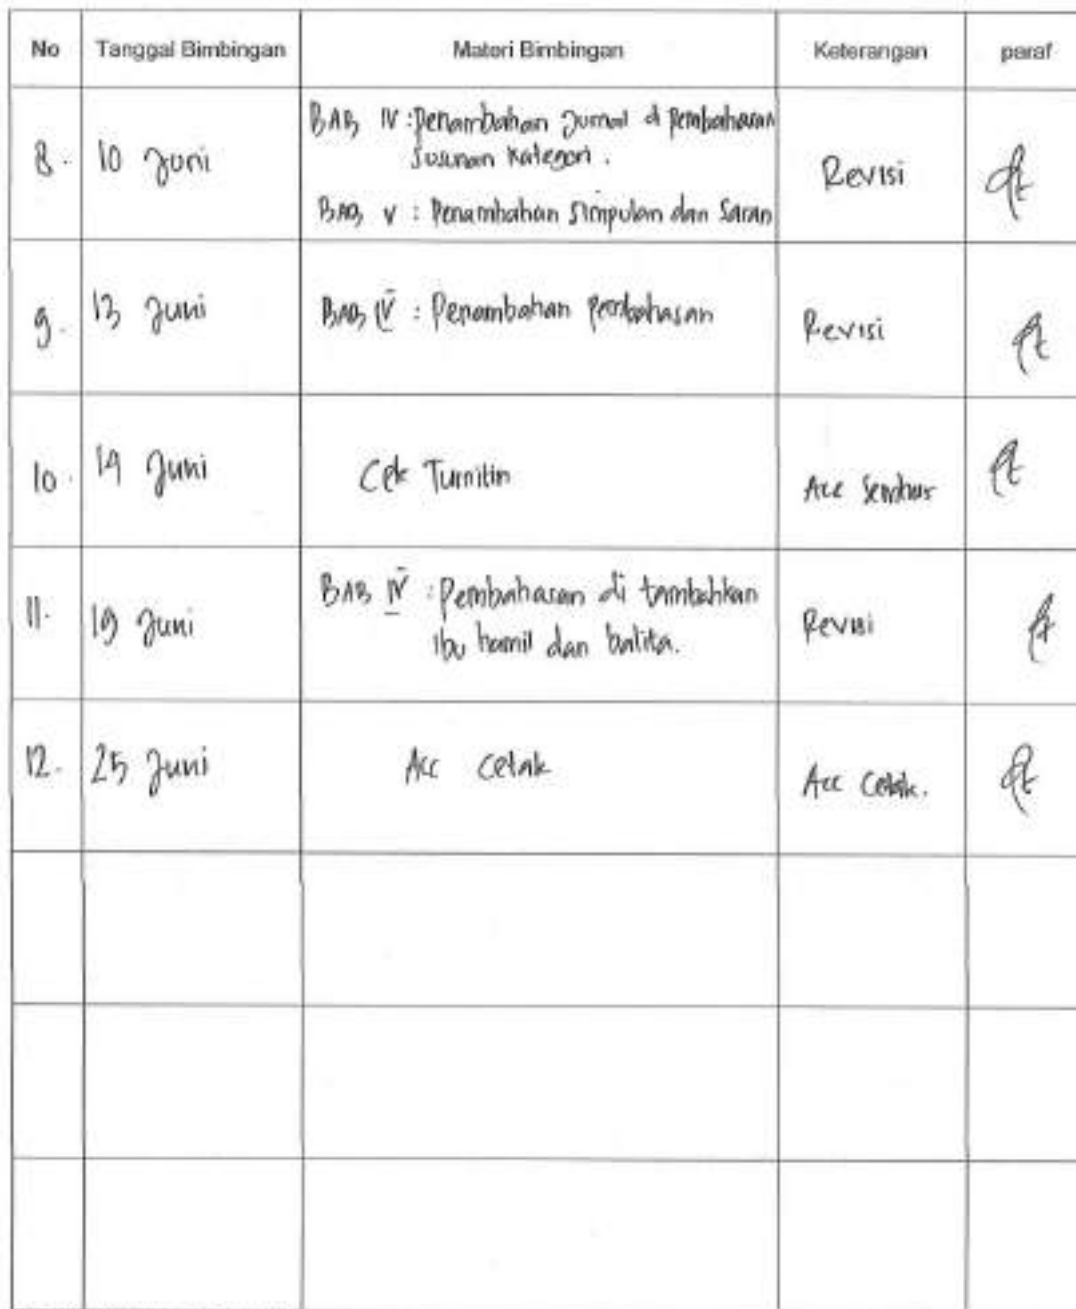 No Tanggal Bimbingan Materi Bimbingan Keterangan paraf
8. 10 Juni BAB IV : Penambahan Jurnal di Pembahasan
Susunan Kategori.
Revisi
BAB V : Penambahan Simpulan dan Saran
9. 13 Juni BAB IV : Penambahan pembahasan Revisi
10. 14 Juni Cek Turnitin Acc Semhas
11. 19 Juni BAB IV : Pembahasan di tambahkan
ibu hamil dan balita.
Revisi
12. 25 Juni Acc cetak Acc Cetak.